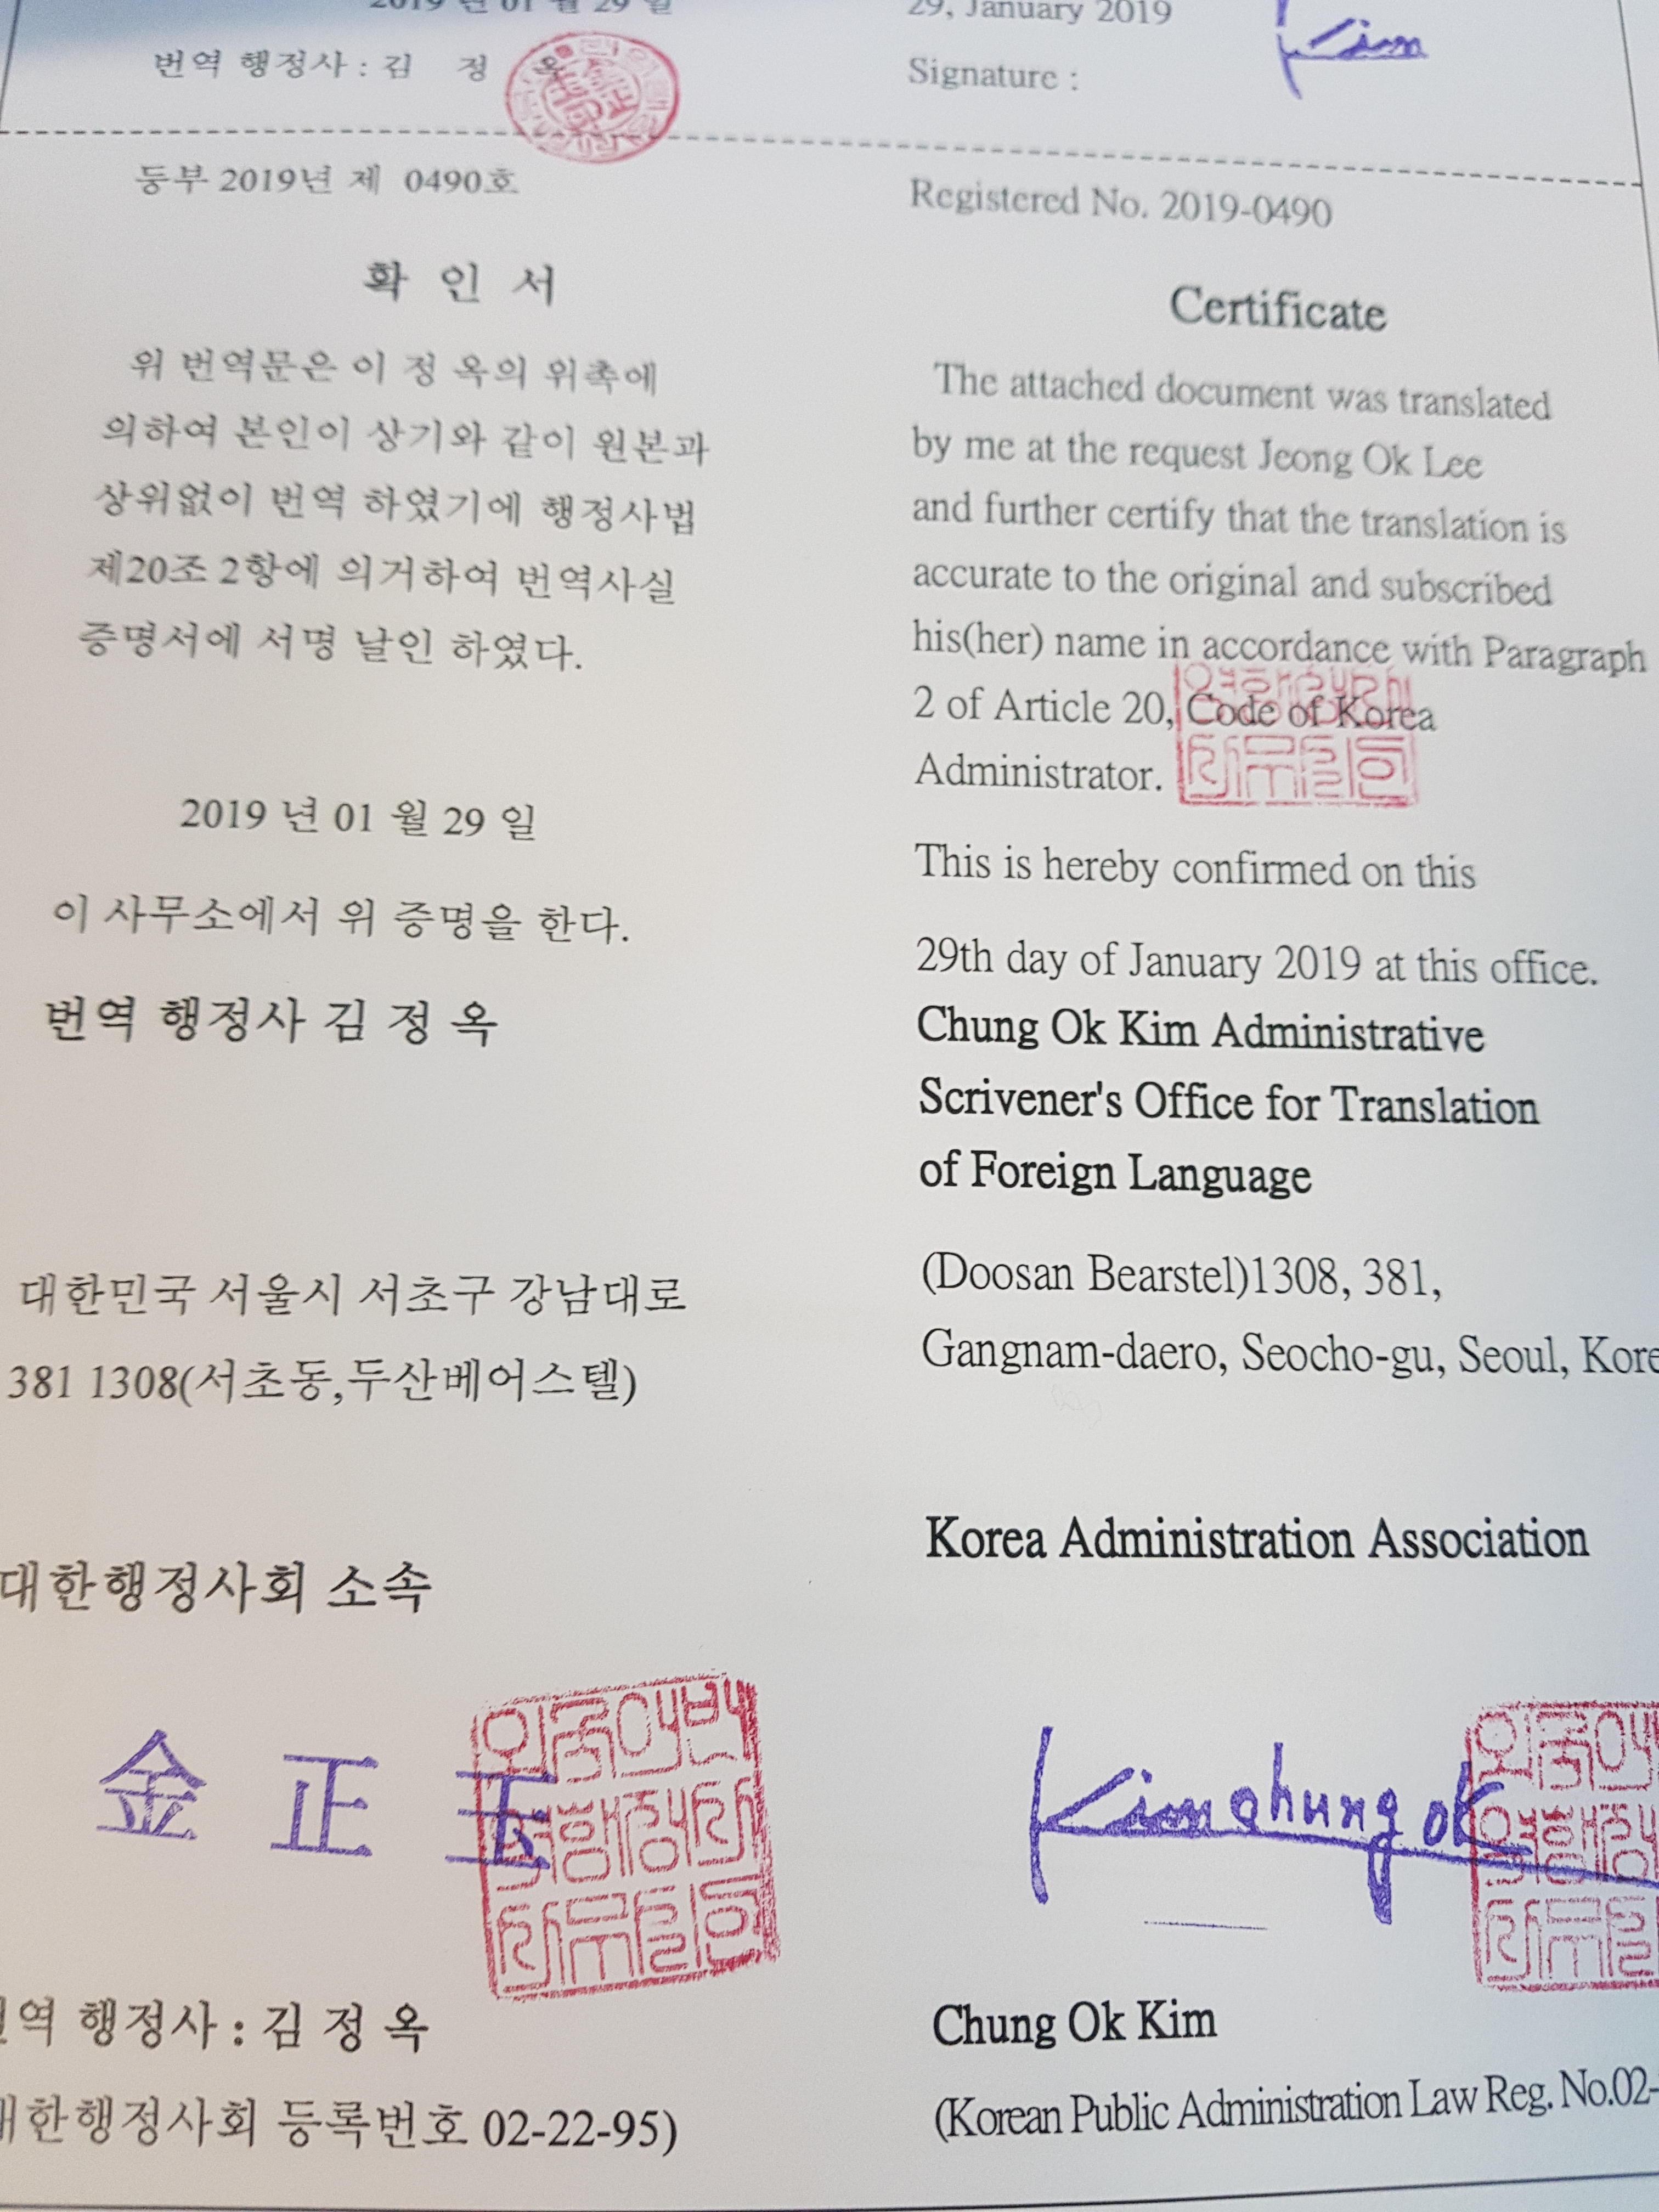 2019 년 01 월 29 일
번역 행정사 : 김 정 옥
29, January 2019
Signature :
Kim
등부 2019년 제 0490호
확 인 서
위 번역문은 이 정 옥의 위촉에
의하여 본인이 상기와 같이 원본과
상위없이 번역 하였기에 행정사법
제20조 2항에 의거하여 번역사실
증명서에 서명 날인 하였다.
2019 년 01 월 29 일
이 사무소에서 위 증명을 한다.
번역 행정사 김 정 옥
대한민국 서울시 서초구 강남대로
381 1308(서초동,두산베어스텔)
대한행정사회 소속
金 正 玉
번역 행정사 : 김 정 옥
대한행정사회 등록번호 02-22-95)
Registered No. 2019-0490
Certificate
The attached document was translated
by me at the request Jeong Ok Lee
and further certify that the translation is
accurate to the original and subscribed
his(her) name in accordance with Paragraph
2 of Article 20, Code of Korea
Administrator.
This is hereby confirmed on this
29th day of January 2019 at this office.
Chung Ok Kim Administrative
Scrivener's Office for Translation
of Foreign Language
(Doosan Bearstel)1308, 381,
Gangnam-daero, Seocho-gu, Seoul, Kore
Korea Administration Association
Kim chung ok
Chung Ok Kim
(Korean Public Administration Law Reg. No.02-
외국어번
역행정사
사무소인